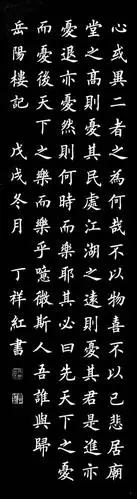 心或異二者之為何哉不以物喜不以己悲居廟
堂之高則憂其民處江湖之遠則憂其君是進亦
憂退亦憂然則何時而樂耶其必曰先天下之憂
而憂後天下之樂而樂乎噫微斯人吾誰與歸
岳陽樓記 戊戌冬月 丁祥紅書